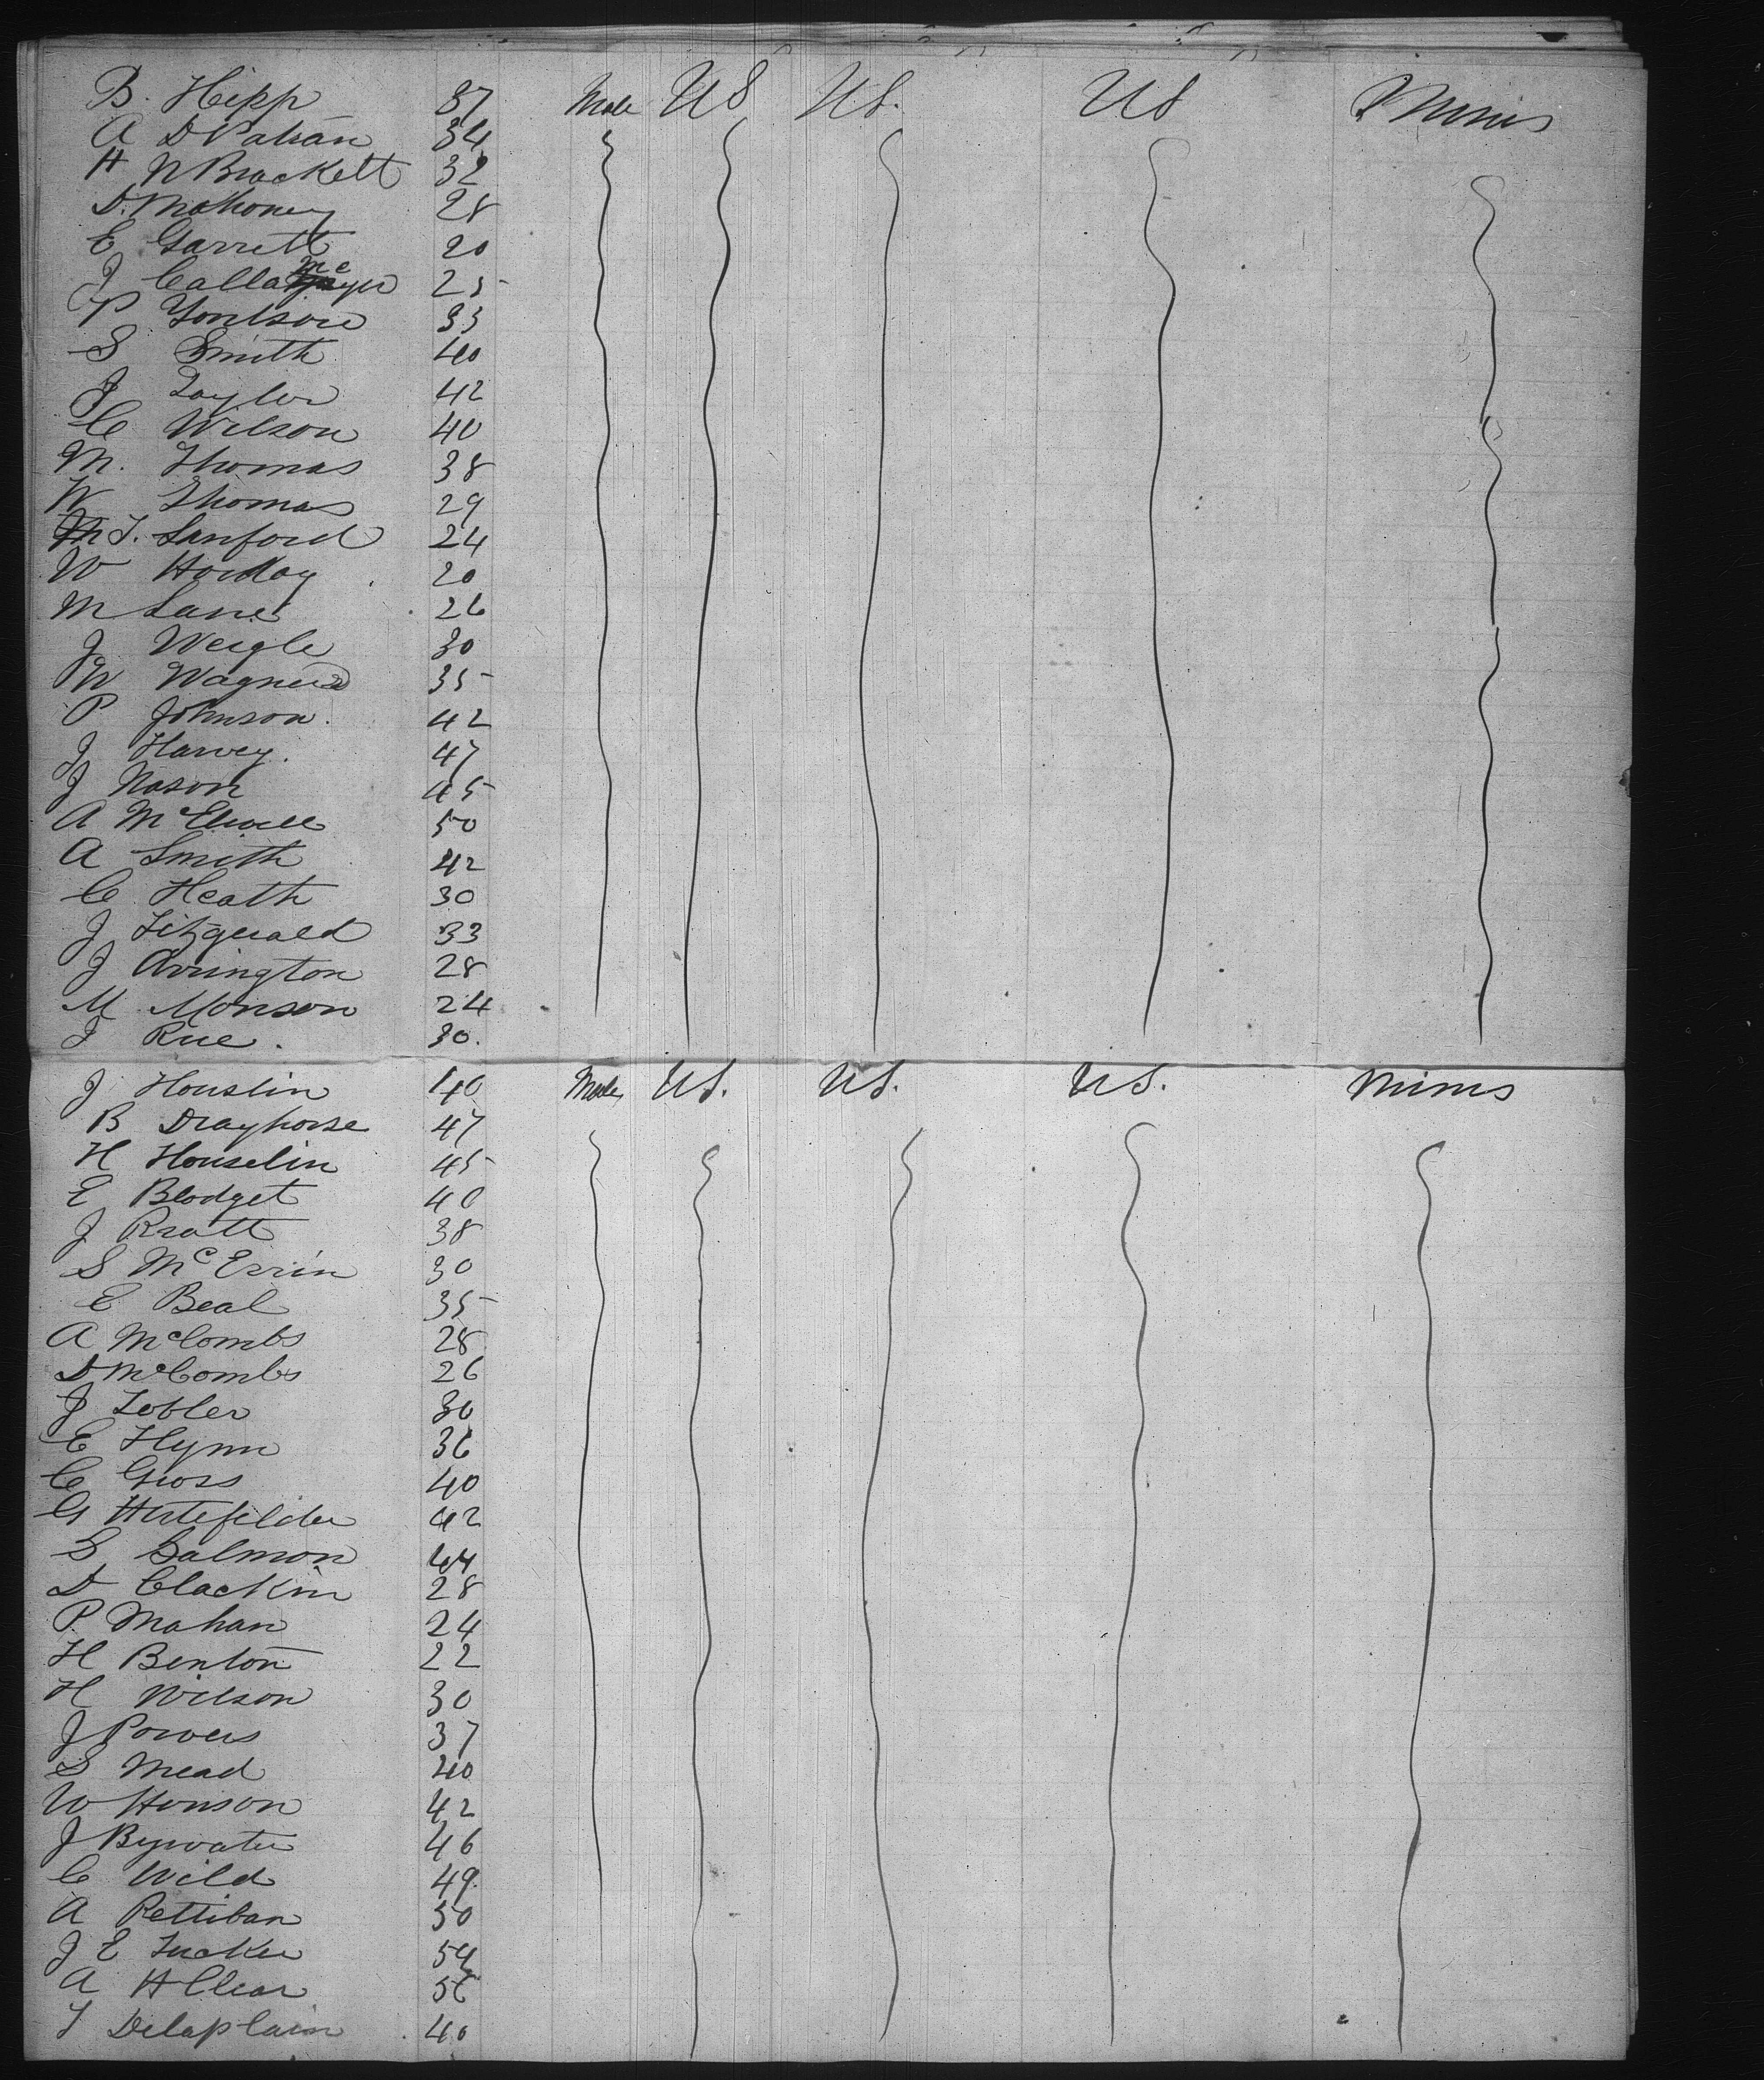 B. Hipp 37 Male US US. US Mines
A D Patran 34
H N Brackett 32
D. Mahoney 28
E Garrett 20
J 25
P 33
S Smith 40
J Taylor 42
C Wilson 40
M. Thomas 38
W Thomas 29
T. Sanford 24
W 20
M Lane 26
J Weigle 30
W Wagner 35
P Johnson. 42
J Harvey. 47
J Nason 45
A McElwee 50
A Smith 42
C Heath 30
J Fitzgerald 33
J Arrington 28
M Monson 24
J Rue. 30.
J Houslin 40 Male US. US. US. Mines
B Drayhorse 47
H Houselin 45
E Blodget 40
J Pratt 38
S McErrin 30
E Beal 35
A McCombs 28
D McCombs 26
J Tobler 30
E Flynn 36
C Gross 40
G 42
S Salmon 44
D Clackin 28
P. Mahan 24
H Benton 22
H Wilson 30
J Powers 37
S Mead 40
W Henson 42
J Bywater 46
C Wild 49.
A Pettiban 50
J E Tucker 54
A H Clear 56
T Delaplain 40